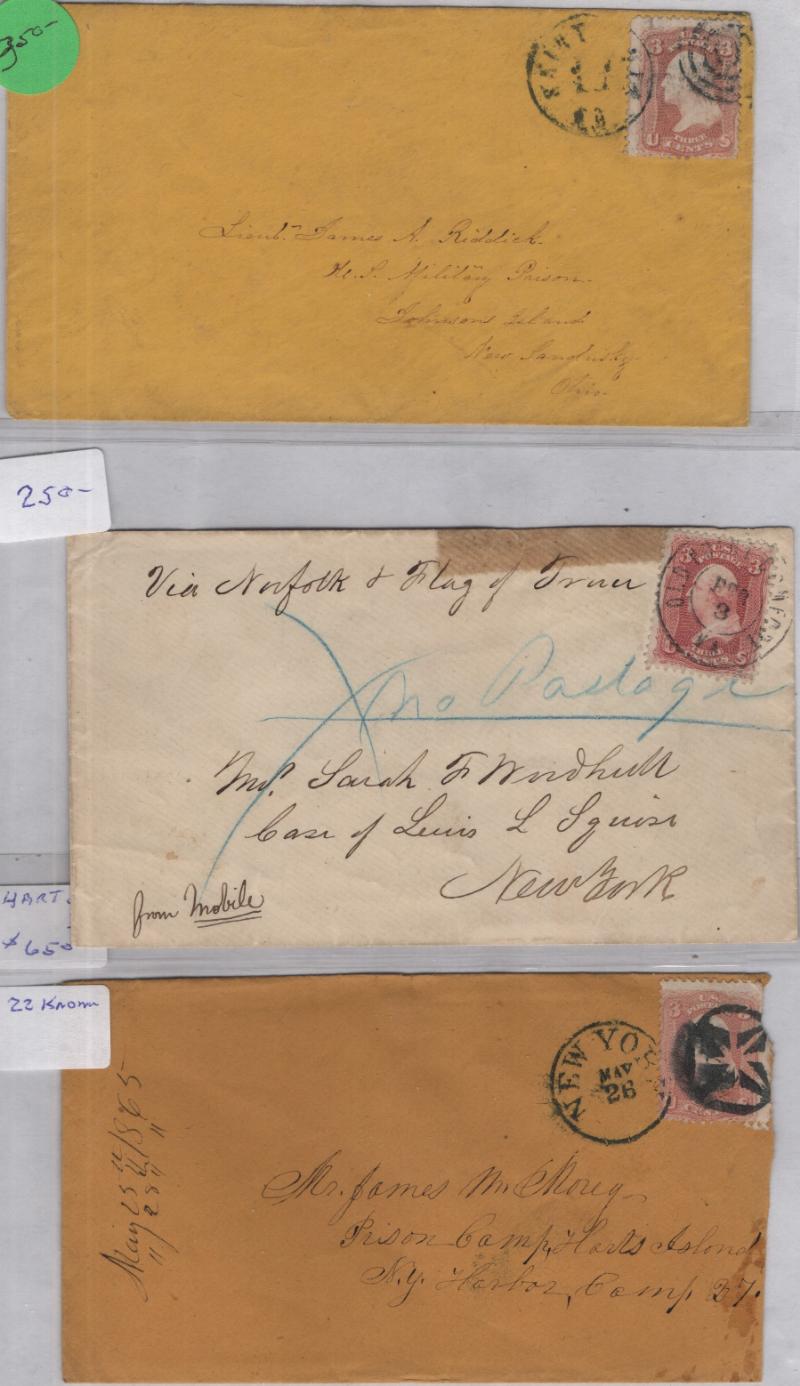 350-
SAINT
MO
3 3
U.S.
POSTAGE
U S
THREE
CENTS
Lieut. James A. Riddick.
U.S. Military Prison.
Johnsons Island
New Sandusky
Ohio.
250-
Via Norfolk & Flag of Truce
3 3
U.S.
POSTAGE
OLD POINT COMFORT
DEC
3
VA
U S
THREE
CENTS
No Postage
Mrs. Sarah F Woodhull
Care of Lewis L Squire
New York
from Mobile
HART
$650-
22 Known
3
U.S.
U
CENTS
NEW YORK
MAY
26
May 25th/1865
" 28 " "
Mr. James
Prison Camp, Harts Island
N.Y. Harbor, Camp 27.